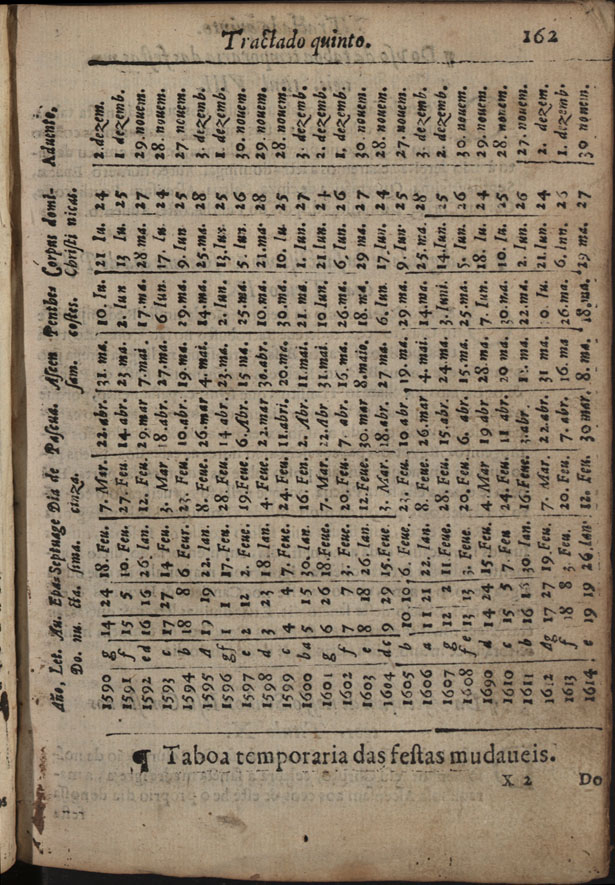 Tractado quinto.
162
Año, Let. Au. Epac Septuage Dia de Pascua. Ascen Penthe Corpus domi Aduento.
Do. nu. cta. sima. cinza. sam. costes. Christi nicas.
1590 g 14 24 18. Feu. 7. Mar. 22. abr. 31. ma. 10. Iu. 21 Iu 24 2. dezem.
1591 f 15 5 10. Feu. 27. Feu. 14. abr. 23 ma. 2. Iun 13 Iu. 25 1 dezemb.
1592 ed 16 16 26. Ian. 12. Feu. 29. mar 7. mai. 17. ma. 28 ma 27 29. nouem.
1593 c 17 27 14 Feu 3. Mar 18. abr. 27. ma. 6 Iun. 17. Iu 24 28. nouem.
1594 b 18 8 6 Feur. 23. Feu. 10. abr. 19. ma. 29. ma. 9. Iun 25 27 nouem.
1595 A 19 19 22. Ian. 8. Feue. 26 mar 4. mai. 14. ma. 25. ma. 28 3. dezemb.
1596 gf 1 1 17. Feu. 28. Feu. 14 abr. 23. ma. 2. Iun. 13. Iun. 25 1. dezemb.
1597 e 2 12 2. Feue. 19. Feue. 6. Abr. 15. ma. 25. ma. 5. Iun. 26 30. nouem.
1598 d 3 23 18 Ian. 4. Feue. 22. mar 30. abr. 10. ma. 21. ma. 28 29. nouem.
1599 c 4 4 7. Feue. 24. Feu. 11. abri. 20. ma. 30. ma. 10. Iu. 25 28. nouem.
1600 ba 5 15 30. Ian 16. Fen. 2. Abr. 11. mai. 21. ma. 1. Iun. 27 3. dezemb.
1601 g 6 26 18. Feue. 7. Mar. 22. Abr 31. mai. 10 Iun. 21. Iun. 24 2. dezemb.
1602 f 7 7 3. Feue. 20. Feu. 7. abr. 16. ma. 26. ma. 6. Iun. 26 1. dezemb.
1603 e 8 18 26. Ian. 12. Feue. 30. mar 8. maio. 18. ma. 29 ma. 27 30 nouem.
1604 dc 9 29 15. Feue 3. Mar. 18. abr. 27 ma. 6. Iun. 17. Iun. 24 28. nouem.
1605 b 10 10 6. Feue. 23. Feu. 10 abr. 19 ma. 29 ma. 9. Iun. 25 27. nouem.
1606 a 11 21 22. Ian. 8. Feue. 26. mar 4. mai. 14. ma. 25. ma. 28 3. dezemb.
1607 g 12 2 11 Feue. 28. Feu. 15. abr. 24 ma. 3. Iuni. 14. Iun. 25 2. dezemb.
1608 fe 13 13 3. Feue 20. Feu. 6. abr. 15. ma. 25. ma. 5. Iun. 26 30. nouem.
1690 d 14 24 15. Feu 4. Mar 19 abr 28 ma 7. Iun. 18. Iu 24 29. nouem.
1610 c 15 5 7. Feu 24. Feu. 11 abr. 20 ma. 30. ma. 10. Iu. 25 28. nouem.
1611 b 16 30. Ian 16. Feue. 3. abr. ma. 22. ma. 2. Iun. 26 27. nouem
1612 Ag 17 27 19. Feu. 7. Mar. 22. abr. 31 ma. Iu. 21. Iun. 24 2. dezem.
1613 f 18 8 3. Feu. 20. Feu. 7. abr. 16 ma 26. ma. 6. Iun. 26 1. dezemb.
1614. e 19 19 26. Ian 12. Feu. 30 mar. 8. ma. 18. ma. 29 ma. 27 30 nouem.
¶ Taboa temporaria das festas mudaueis.
X 2 Do